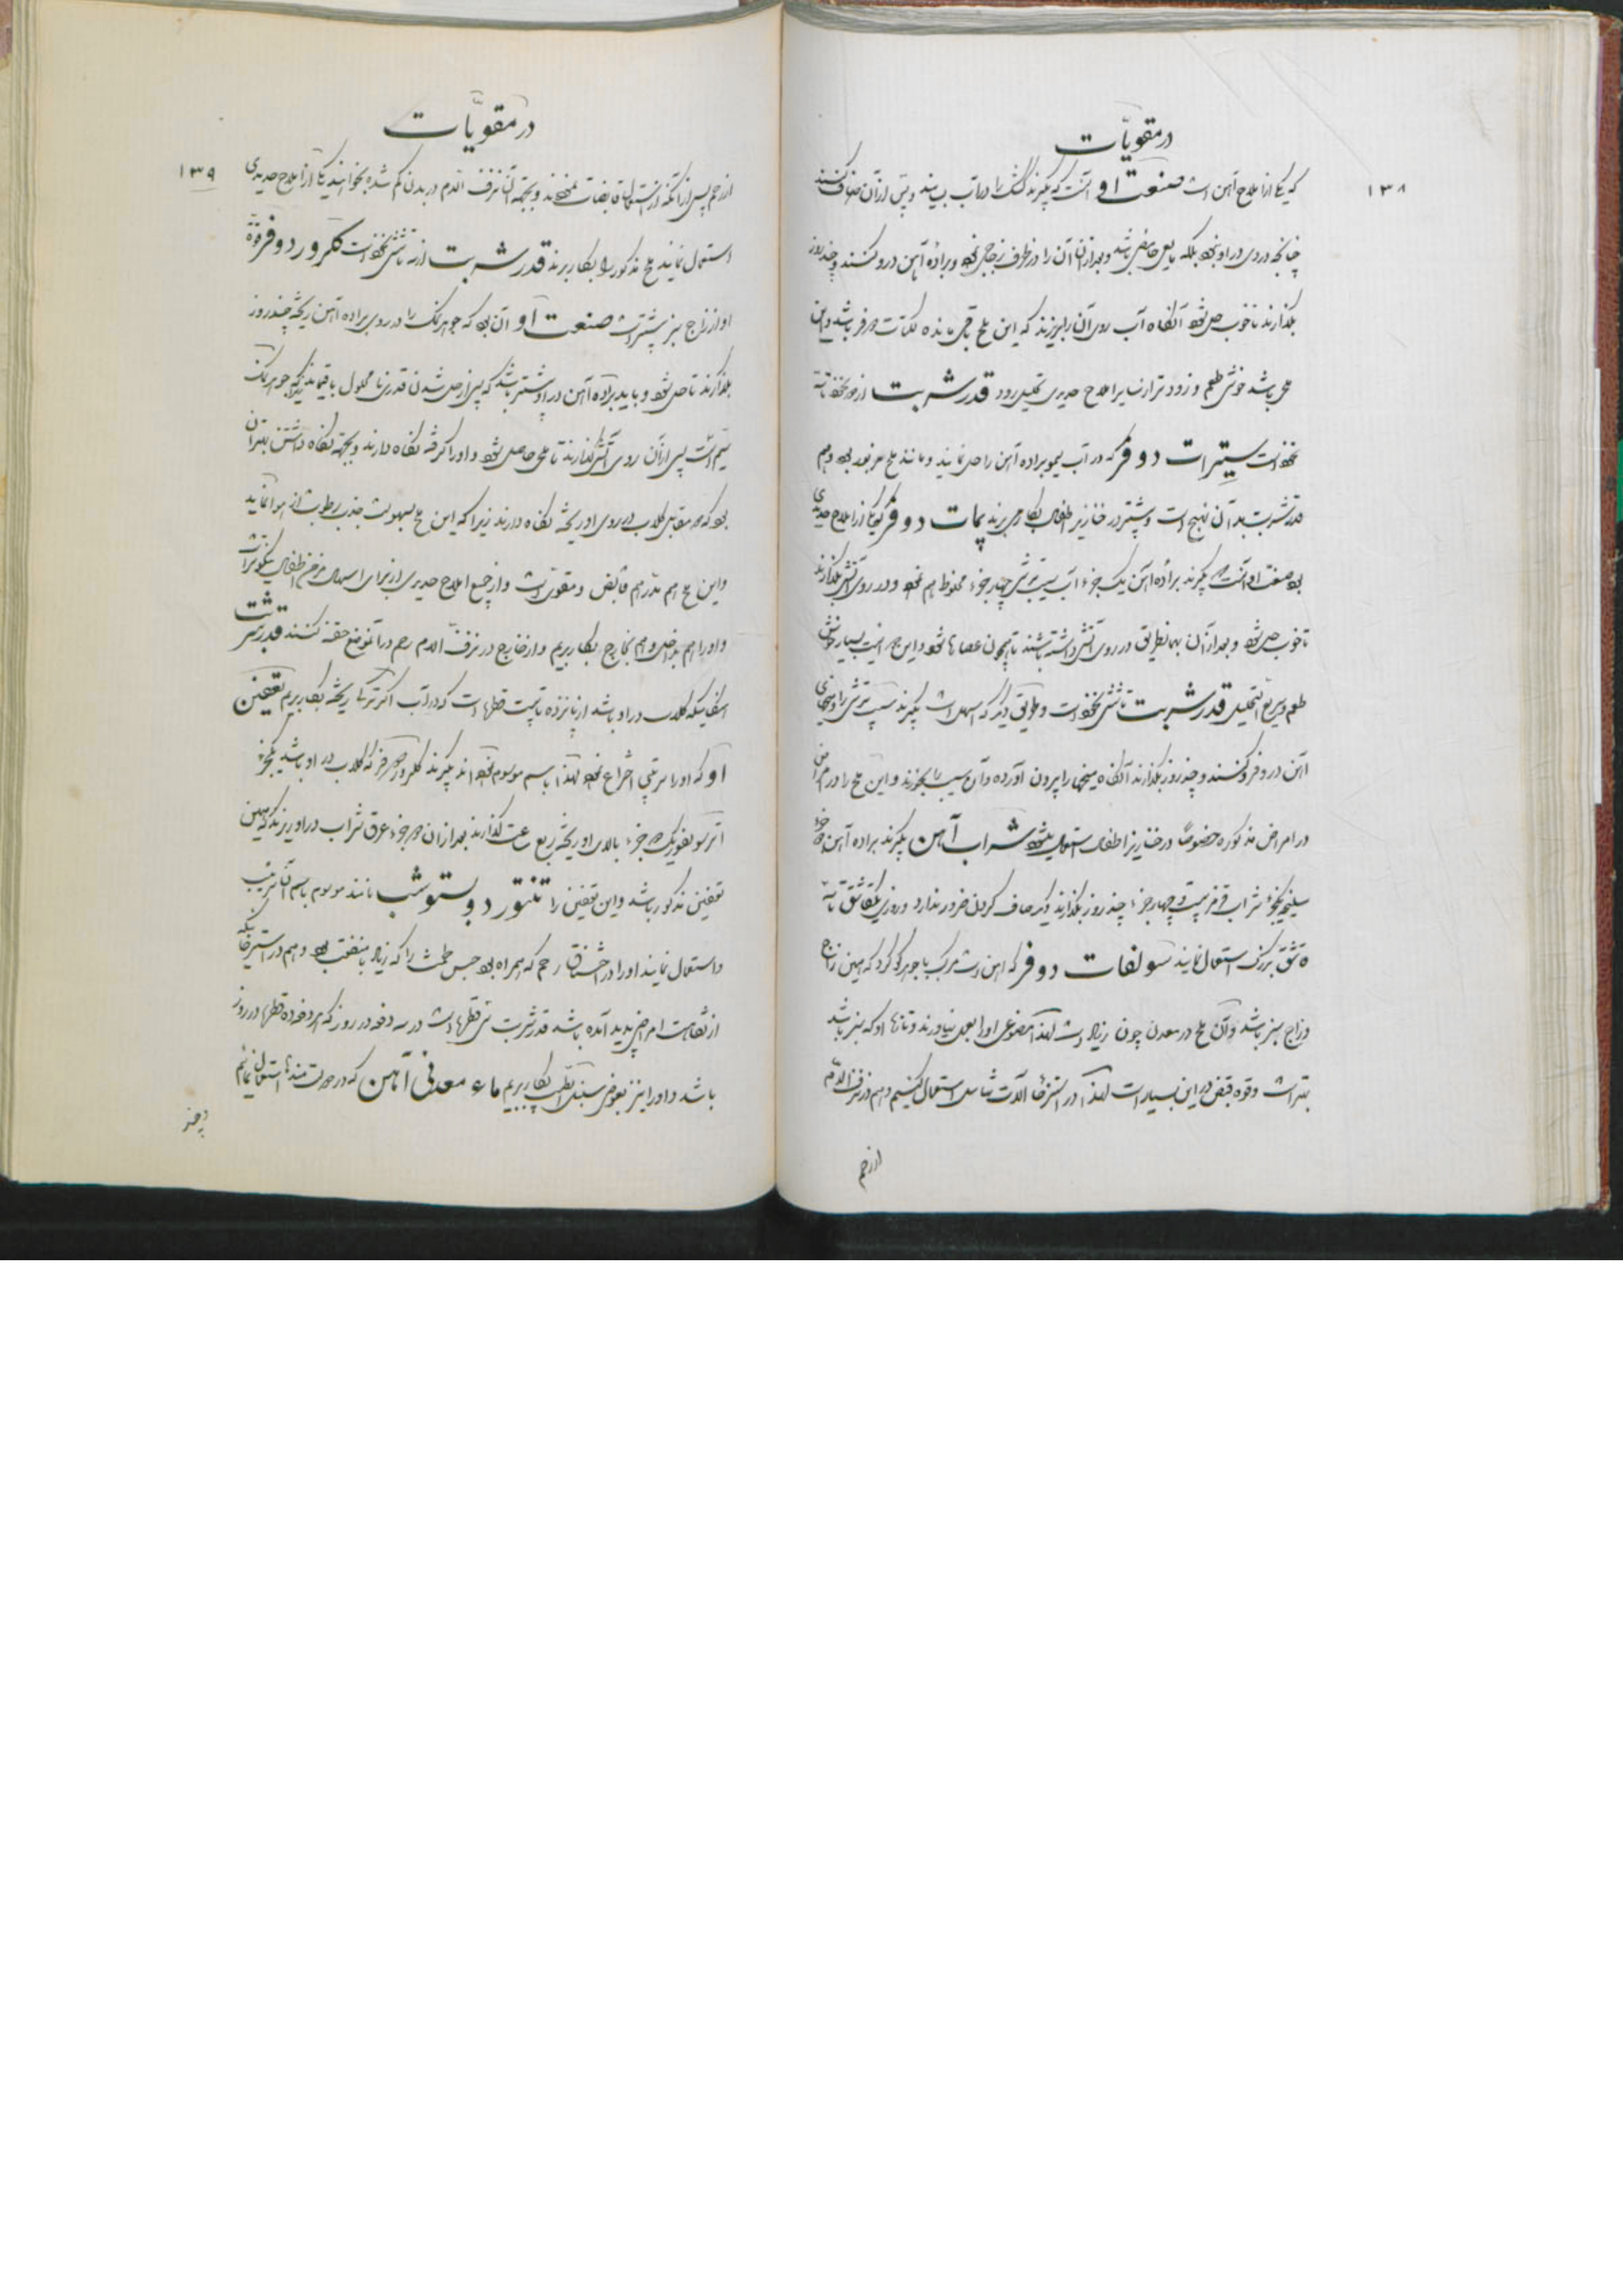 ۱۳۸
در مقویّات
که یکی از املاح آهن است صنعت او آنست که بگیرند کشک را در آب بسایند و پس از آن صاف کنند
چنانچه دردی در او نبود بلکه مایع حامضی باشد و بعد از آن آن را در ظرف زجاجی نهند و براده آهن درو کنند و چند روز
بگذارند تا خوب حل شود آنگاه آب روی آن را بریزند که این ملح باقی مانده لکتات دو فر باشد و این
ملحی باشد خوش طعم و زودتر از سایر املاح حدیدی تحلیل رود قدر شربت از دو نخود تا سه
نخود است سیترات دو فر که در آب لیمو براده آهن را حل نمایند و مانند ملح مزبور بود و هم
قدر شربت بدان نهج است و بیشتر در خنازیر اطفال بکار می برند پمات دو فر که یکی از املاح حدیدی
بود صنعت او آنست که بگیرند براده آهن یک جزء آب سیب ترش چهار جزء مخلوط هم نموده در روی آتش بگذارند
تا خوب حل شود و بعد از آن بهمان طریق در روی آتش داشته باشند تا بچون عصاره شود و این جوهریست بسیار خوش
طعم و سریع التحلیل قدر شربت تا شش نخود است و طریق دیگر که اسهل است بگیرند سیب ترشی را و میخهای
آهن درو فرو کنند و چند روز بگذارند آنگاه میخها را بیرون آورده و آن سیب را بخورند و این ملح را در امراض
در امراض مذکوره خصوصاً در خنازیر اطفال استعمال میشود شراب آهن بگیرند براده آهن دو جزء
سلیخه یکجزء شراب قرمز بیست و چهار جزء چند روز بگذارند دیگر صاف کردن ضرور ندارد و روزی یک قاشق تا سه
قاشق بزرگ استعمال نمایند سولفات دو فر که آهن است مرکب با جوهر گوگرد که همین زاج
و زاج سبز باشد و آن ملح در معدن چون زیاد است لهذا مصنوعی او را بعمل نیاورند و تازها او که سبز باشد
بهتر است و قوه قبض در این بسیار است لهذا در استرخاء آلات تناسل استعمال کنیم و هم در نزف الدم
از رحم
۱۳۹
در مقویّات
از رحم پس از آنکه از استعمال قابضات نفع نبخشد و بجهة آن نزف الدم در بدن کم شده بخواهند یکی از املاح حدیدی
استعمال نمایند ملح مذکور را بکار برند قدر شربت از سه تا شش نخود است کلرور دو فر قوة
او از زاج سبز بیشتر است صنعت او آن بود که جوهر نمک را در روی براده آهن ریخته چند روز
بگذارند تا حل شود و باید براده آهن در او بیشتر باشد که پس از حل شدن قدری نامحلول باقیماند زیرا که جوهر نمک
سم است پس از آن روی آتش گذارند تا ملحی حاصل شود و او را گرفته نگاه دارند و بجهة نگاه داشتن بهتر آن
بود که دو مقابل گلاب در روی او ریخته نگاه دارند زیرا که این ملح بسهولت جذب رطوبت از هوا نماید
و این ملح هم مدر هم قابض و مقوی است و از جمیع املاح حدیدی از برای اسهال مزمن اطفال نیکوتر است
و او را هم بداخل و هم بخارج بکار بریم و از خارج در نزف الدم رحم در آن موضع حقنه کنند قدر شربت
آنکه گلاب در او باشد از پانزده تا بیست قطره است که در آب ریخته بکار بریم تعفین
او که او را مرتبی اختراع نموده لهذا باسم موسوم نموده اند بگیرند کلرور دو فر که گلاب در او باشد یکجزء
اتر سولفوریک دو جزء بالای او ریخته ربع ساعت گذارند بعد از آن دو جزء عرق شراب در او ریزند که همین
تعفین مذکور باشد و این تعفین را تنتور دوبستوشب نامند موسوم باسم آن مرتب
و استعمال نمایند او را در اختناق رحم که همراه بود حبس طمث را که زیاد با منفعت بود و هم در استرخائیکه
از نقاهت امراض پدید آمده باشد قدر شربت سی قطره است در سه دفعه در روز که هر دفعه ده قطره در روز
باشد و او را نیز بعوض سنبل الطیب بکار بریم ماء معدنی آهن که در حالت استعمال نمائیم
در چند